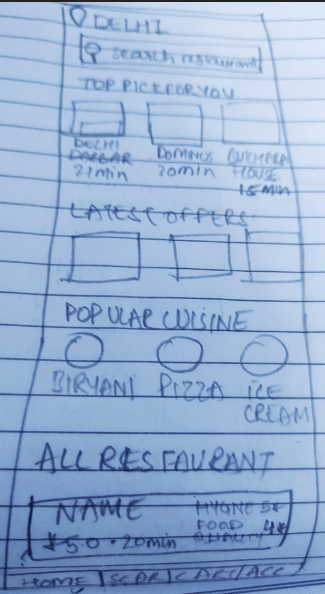 DELHI
search restaurant
TOP PICK FOR YOU
DELHI DARBAR 21min
DOMINOS 20min
HOUSE 15 MIN
LATEST OFFERS
POPULAR CUISINE
BIRYANI PIZZA ICE CREAM
ALL RESTAURANT
NAME
HYGNE 5★
FOOD QUALITY 4★
$50 · 20min
HOME